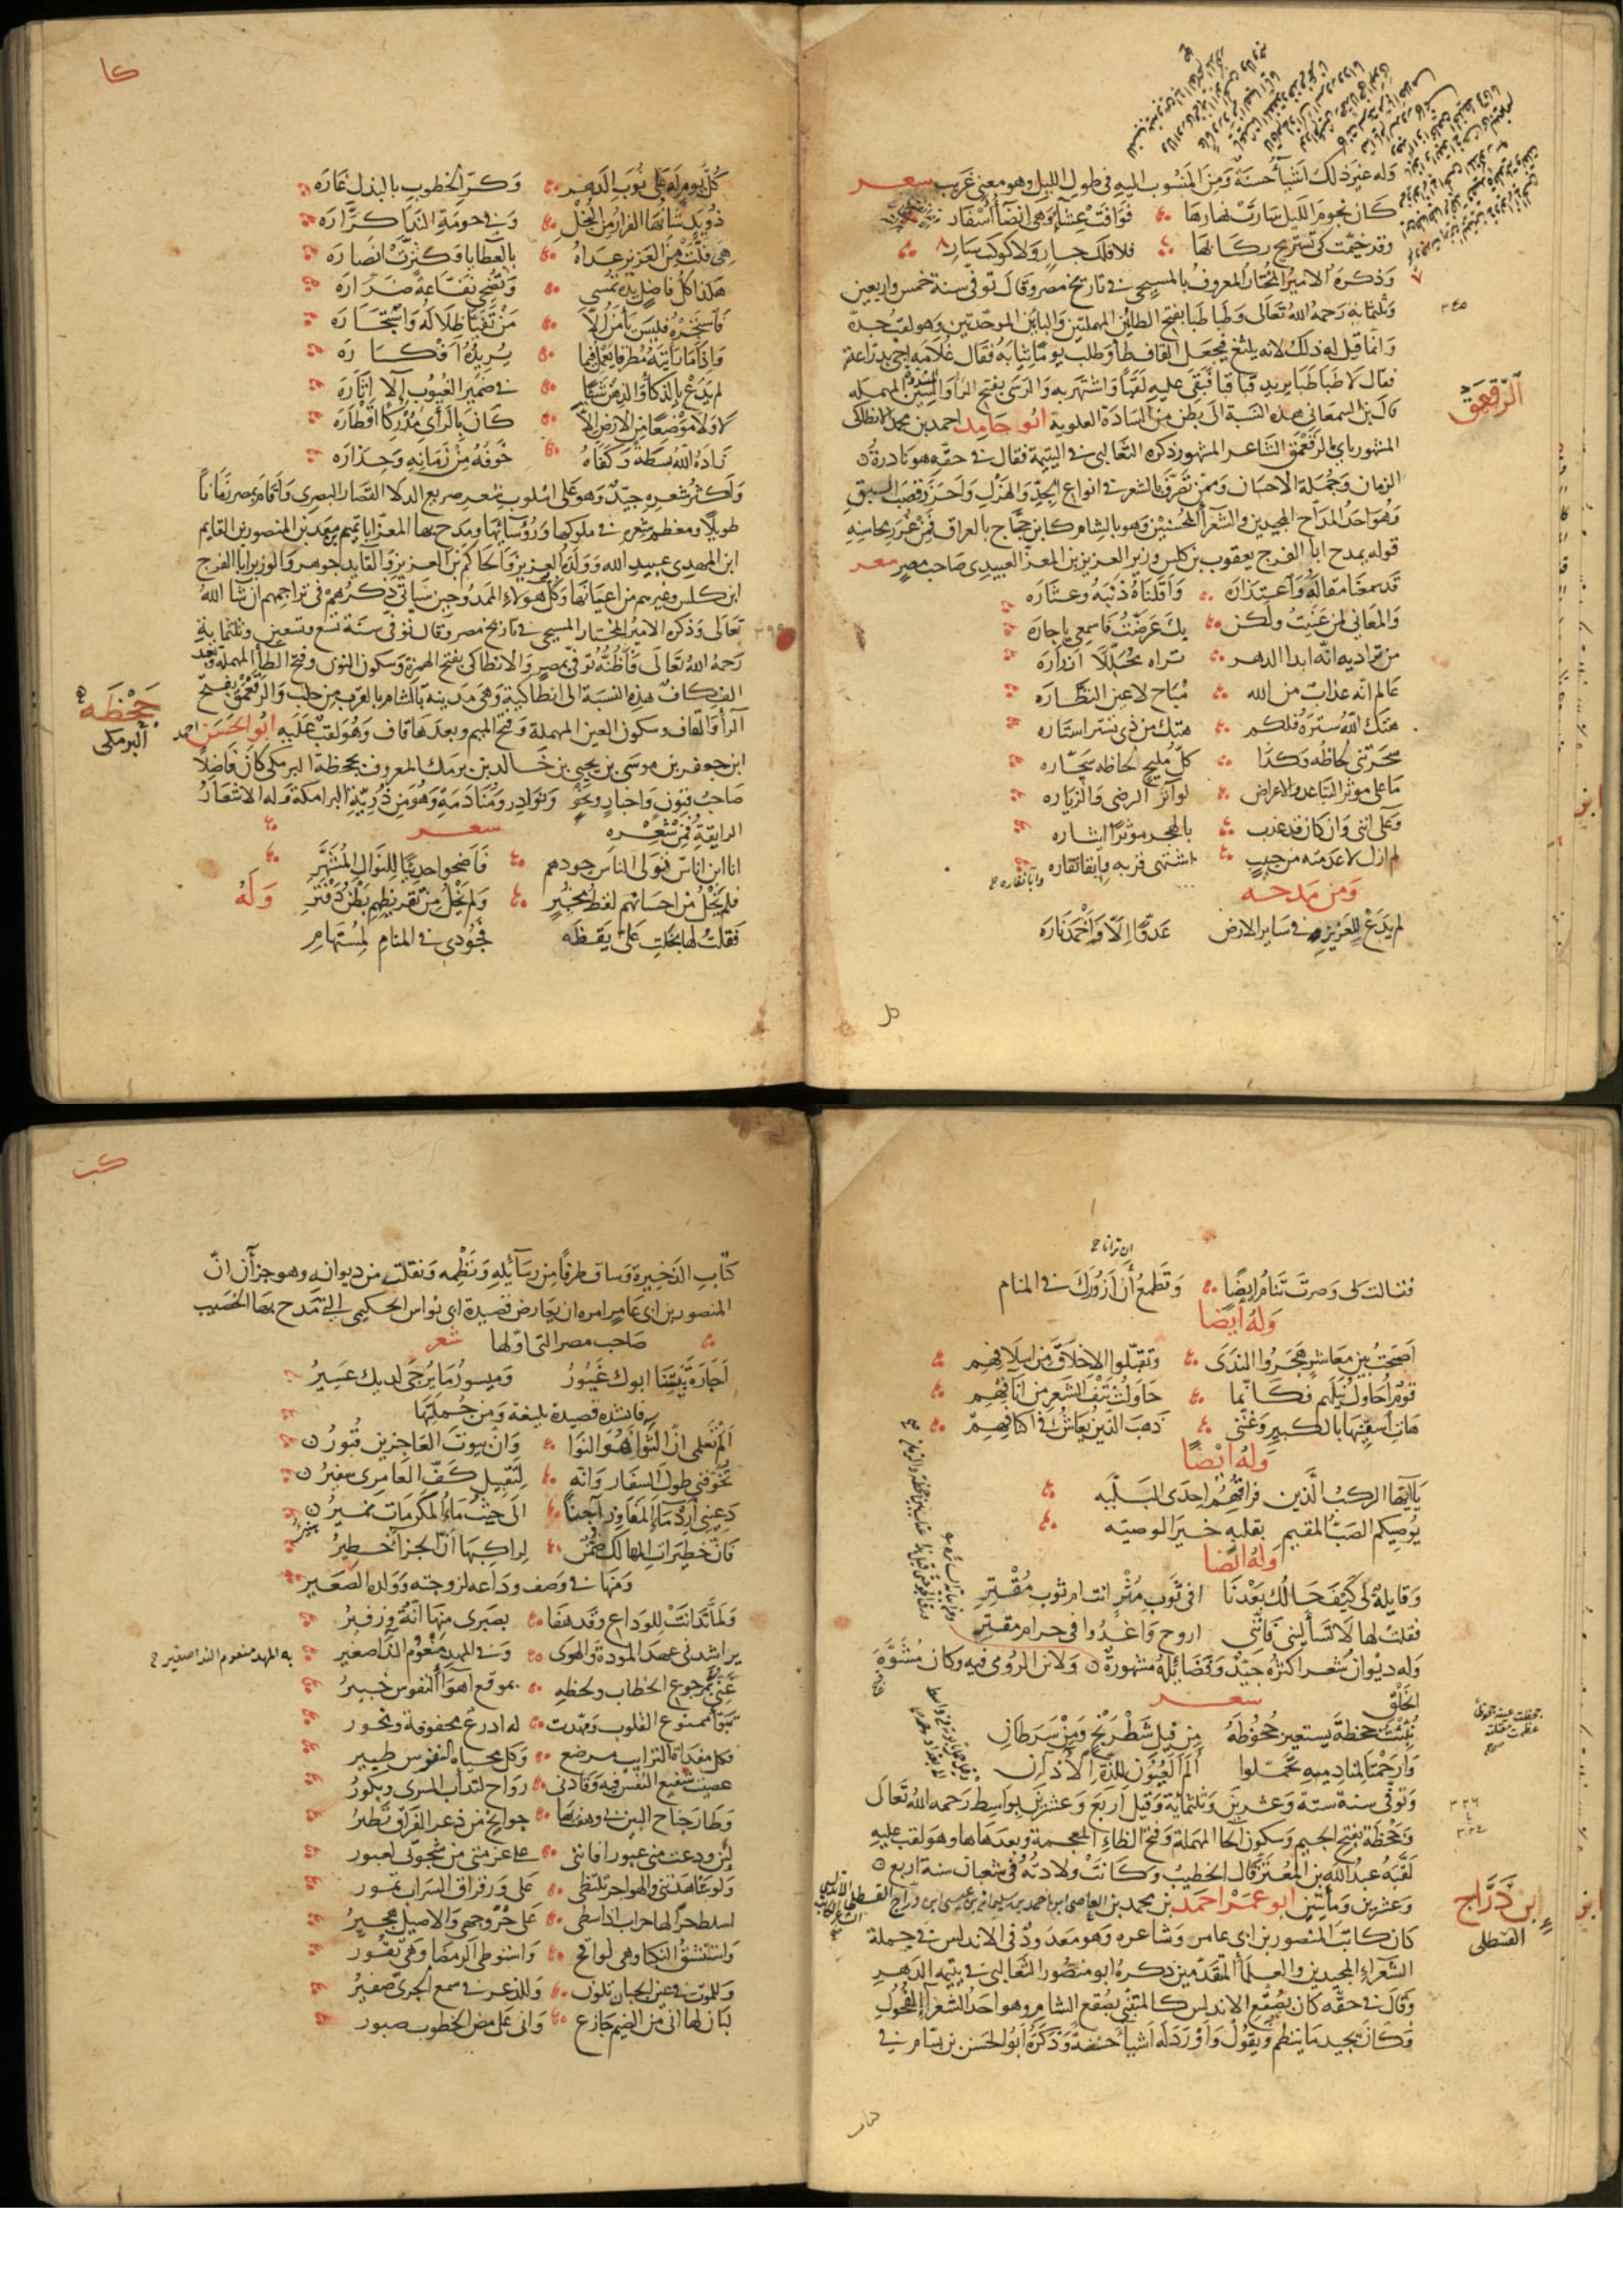 وله غير ذلك اشيأ حسنة ومن المنسوب اليه في طول الليل وهو معنى غريب شعر
كان نجوم الليل سارت نهارها فوافت عشأ وهي انضأ اسفار
وقد خيمت كي تستريح ركابها فلا فلك جار ولا كوكب سار
وذكره الامير المختار المعروف بالمسبحي في تاريخ مصر وقال توفي سنة خمس واربعين
٣٤٥
وثلثمائة رحمه الله تعالى وطباطبا بفتح الطائين المهملتين والبائين الموحدتين وهو لقب جده
وانما قيل له ذلك لانه يلثغ فيجعل القاف طأ وطلب يوما ثيابه فقال غلامه اجئ بدراعة
فقال لا طباطبا يريد قبا قبا فبقى عليه لقبا واشتهر به والرسي بفتح الرأ والسين المشددة المهملة
قال بن السمعاني هذه النسبة الى بطن من السادة العلوية ابو حامد احمد بن محمد الانطاكي
الرقعمق
المشهور بابي الرقعمق الشاعر المشهور ذكره الثعالبي في اليتيمة فقال في حقه هو نادرة
الزمان وجملة الاحسان وممن تصرف بالشعر في انواع الجد والهزل واحرز قصب السبق
وهو احد المداح المجيدين والشعرأ المحسنين وهو بالشام كابن حجاج بالعراق فمن غرر محاسنه
قوله يمدح ابا الفرج يعقوب بن كلس وزير العزيز بن المعز العبيدي صاحب مصر شعر
قد سمعنا مقاله واعتذاره واقلناه ذنبه وعثاره
والمعاني لمن عنيت ولكن بك عرضت فاسمعي يا جاره
من تراديه انه ابدا الدهر تراه محللا ازراره
عالم انه عذاب من الله مباح لاعين النظاره
هتك الله ستره فلكم هتك من ذي تستر استاره
سحرتني لحاظه وكذا كل مليح لحاظه سحاره
ما على موثر التباعد والاعراض لو آثر الرضى والزياره
وعلى انني وان كان قد عذب بالهجر موثر ايثاره
لم ازل لا عدمته من حبيب اشتهى قربه وابى نفاره
ومن مدحه
لم يدع للعزيز في ساير الارض عدوا الا واخمد ناره
كا
كل يوم له على نوب الدهر وكر الخطوب بالبذل غاره
ذو يد شانها الفرار من البخل وفي حومة الندا كراره
هي فلت عن العزيز عداه بالعطايا وكثرت انصاره
هكذا كل فاضل يده تمسي وتضحي نفاعة ضراره
فاستجره فليس يأمن الا من تفيا ظلاله واستجاره
واذا ما رأيته مطرقا يعمل فيما يريده افكاره
لم يدع بالذكاء والذهن شيأ في ضمير الغيوب الا اثاره
لا ولا موضعا من الارض الا كان بالراي مدركا اقطاره
زاده الله بسطة وكفاه خوفه من زمانه وحذاره
واكثر شعره جيد وهو على اسلوب شعر صريع الدلا القصار البصري واقام بمصر زمانا
طويلا ومعظم شعره في ملوكها ورؤسائها ومدح بها المعز ابا تميم معد بن المنصور بن القايم
ابن المهدي عبيد الله وولده العزيز والحاكم بن العزيز والقايد جوهر والوزير ابا الفرج
ابن كلس وغيرهم من اعيانها وكل هولاء الممدوحين سيأتي ذكرهم في تراجمهم ان شا الله
٣٩٩
تعالى وذكره الامير المختار المسبحي في تاريخ مصر وقال توفي سنة تسع وتسعين وثلثمائة
رحمه الله تعالى واظنه توفي بمصر والانطاكي بفتح الهمزة وسكون النون وفتح الطأ المهملة وبعد
الف كاف هذه النسبة الى انطاكية وهي مدينة بالشام بالقرب من حلب والرقعمق بفتح
جحظه البرمكي
الرأ والقاف وسكون العين المهملة وفتح الميم وبعدها قاف وهو لقب عليه ابو الحسن احمد
ابن جعفر بن موسى بن يحيى بن خالد بن برمك المعروف بجحظة البرمكي كان فاضلا
صاحب فنون واخبار ونجوم ونوادر ومنادمة وهو من ذرية البرامكة وله الاشعار
الرايقة فمن شعره شعر
انا ابن اناس فتولى الناس جودهم فاضحوا حديثا للنوال المشهر
فلم يخل من احسانهم لفظ مخبر ولم يخل من تقريظهم بطن دفتر وله
فقلت لها بخلت على يقظه فجودي في المنام لمستهام
فقالت لي وصرت تنام ايضا وتطمع أن ازورك في المنام
وله ايضا
اصبحت بين معاشر هجروا الندى وتقبلوا الاخلاق من اسلافهم
قوم احاول نيلهم فكانما حاولت نتف الشعر من انافهم
هات اسقنيها بالكبير وغنني ذهب الذين يعاش في اكنافهم
وله ايضا
يا ايها الركب الذين فراقهم احدى البليه
يوصيكم الصب المقيم بقلبه خير الوصيه
وله ايضا
وقايلة لي كيف حالك بعدنا افي ثوب مثر انت ام ثوب مقتر
فقلت لها لا تسأليني فانني اروح واغدو في حرام مقتر
وله ديوان شعر اكثره جيد وقضائله مشهورة ولابن الرومي فيه وكان مشوه
الخلق شعر
نبئت جحظة يستعير جحوظه من فيل شطرنج ومن سرطان
وارحمتا لمنادميه تحملوا ألم العيون للذة الاذان
٣٢٦
وتوفي سنة ستة وعشرين وثلثمائة وقيل اربع وعشرين بواسط رحمه الله تعالى
٣٢٤
وجحظة بفتح الجيم وسكون الحا المهملة وفتح الظاء المعجمة وبعدها ها وهو لقب عليه
لقبه عبد الله بن المعتز قال الخطيب وكانت ولادته في شعبان سنة اربع
ابن دراج القسطلي
وعشرين ومأتين ابو عمر احمد بن محمد بن العاصي ابن احمد بن سليمان بن عيسى ابن دراج القسطلي الاندلسي
كان كاتب المنصور بن ابي عامر وشاعره وهو معدود في الاندلس في جملة
الشعرآء المجيدين والعلمأ المتقدمين ذكره ابو منصور الثعالبي في يتيمة الدهر
وقال في حقه كان بصقع الاندلس كالمتنبي بصقع الشام وهو احد الشعرآء الفحول
وكان يجيد ما ينظم ويقول واورد له اشيأ حسنة وذكره ابو الحسن بن بسام في
كتاب
كب
كتاب الذخيرة وساق طرفا من رسائله ونظمه ونقلت من ديوانه وهو جزآن ان
المنصور بن ابي عامر امره ان يعارض قصيدة ابي نواس الحكمي التي مدح بها الخصيب
صاحب مصر التي اولها شعر
اجارة بيتينا ابوك غيور وميسور ما يرجى لديك عسير
فانشده قصيدة بليغة ومن جملتها
الم تعلمي ان الثواء هو التوا وان بيوت العاجزين قبور
تخوفني طول السفار وانه لتقبيل كف العامري سفير
دعيني أرد ماء المفاوز آجنا الى حيث ماء المكرمات نمير
فان خطيرات المهالك ضمن لراكبها ان الجزآ خطير
ومنها في وصف وداعه لزوجته وولده الصغير
ولما تدانت للوداع وقد هفا بصبري منها انة وزفير
يراشدني عهد المودة والهوى وفي المهد مبغوم الندا صغير
عيي بمرجوع الخطاب ولحظه بموقع اهوآ النفوس خبير
تبوا ممنوع القلوب ومهدت له اذرع محفوفة ونحور
فكل مفداة الترايب مرضع وكل محياة النفوس طيير
عصيت شفيع النفس فيه وقادني رواح لتدآب السرى وبكور
وطار جناح البين بي وهفت بها جوانح من ذعر الفراق تطير
لئن ودعت مني غيورا فانني على عزمتي من شجوتي لغيور
ولو شاهدتني والهواجر تلتظي علي ورقراق السراب تمور
اسلط حر الهاجرات اذا سطى على حر وجهي والاصيل هجير
واستنشق النكبا وهي لواقح واستوطي الرمضا وهي تفور
وللموت في عين الجبان تلون وللذعر في سمع الجرئ صفير
لبان لها اني من الضيم جازع واني على مض الخطوب صبور